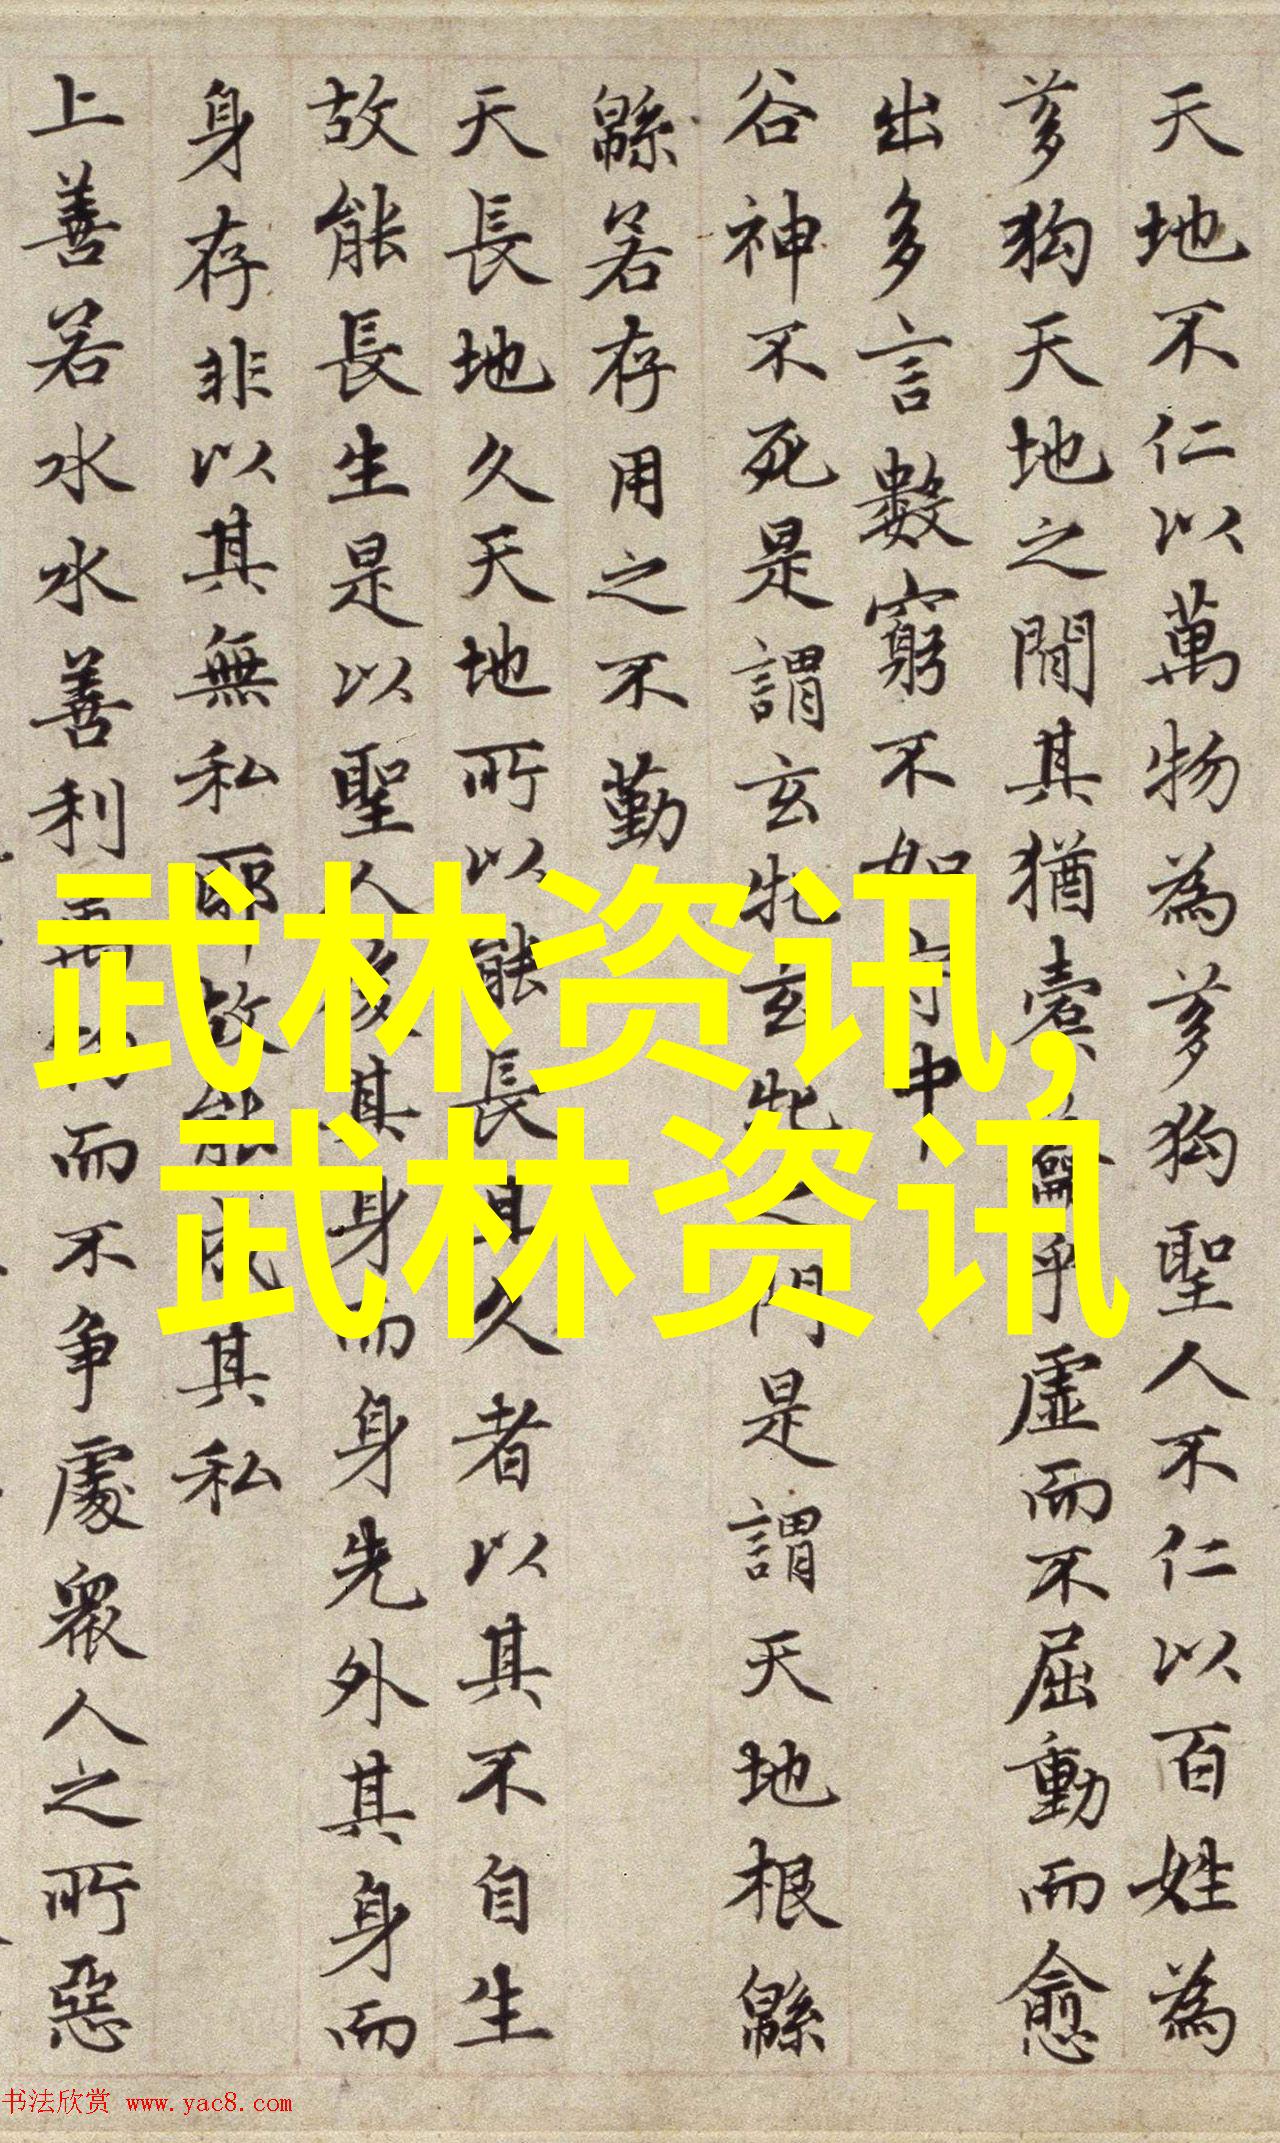 天地不仁以萬物為芻狗聖人不仁以百姓為
芻狗天地之間其猶橐籥乎虛而不屈動而愈
出多言數窮不如守中
谷神不死是謂玄牝玄牝之門是謂天地根緜
緜若存用之不勤
天長地久天地所以能長且久者以其不自生
故能長生是以聖人後其身而身先外其身而
身存非以其無私耶故能成其私
上善若水水善利萬物而不争處衆人之所惡
武林资讯,
武林资讯
书法欣赏 www.yac8.com